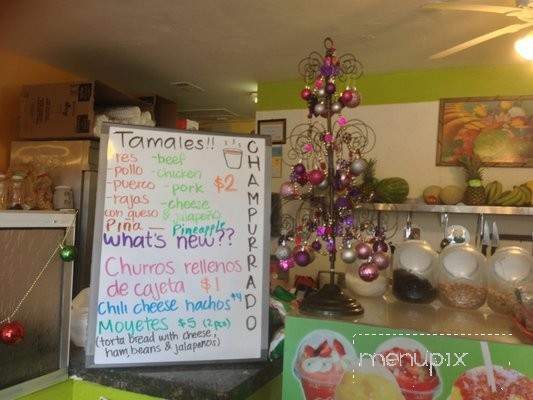 Tamales!!
-res -beef
-pollo -chicken
-puerco -pork $2
-rajas -cheese
con queso & jalapeño
Pina — Pineapple
What's new??
Churros rellenos
de cajeta $1
Chili cheese nachos $4
Moyetes $5 (2pcs)
(torta bread with cheese,
ham, beans & jalapeños)
CHAMPURRADO
menupix